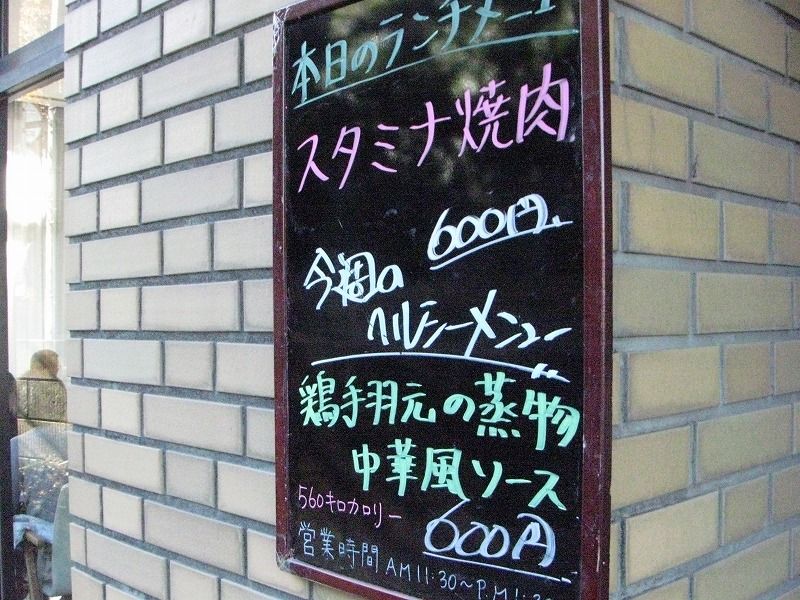 本日のランチメニュー
スタミナ焼肉
600円
今週の
ヘルシーメニュー
鶏手羽元の蒸物
中華風ソース
560キロカロリー
600円
営業時間 AM11:30～P.M1:30